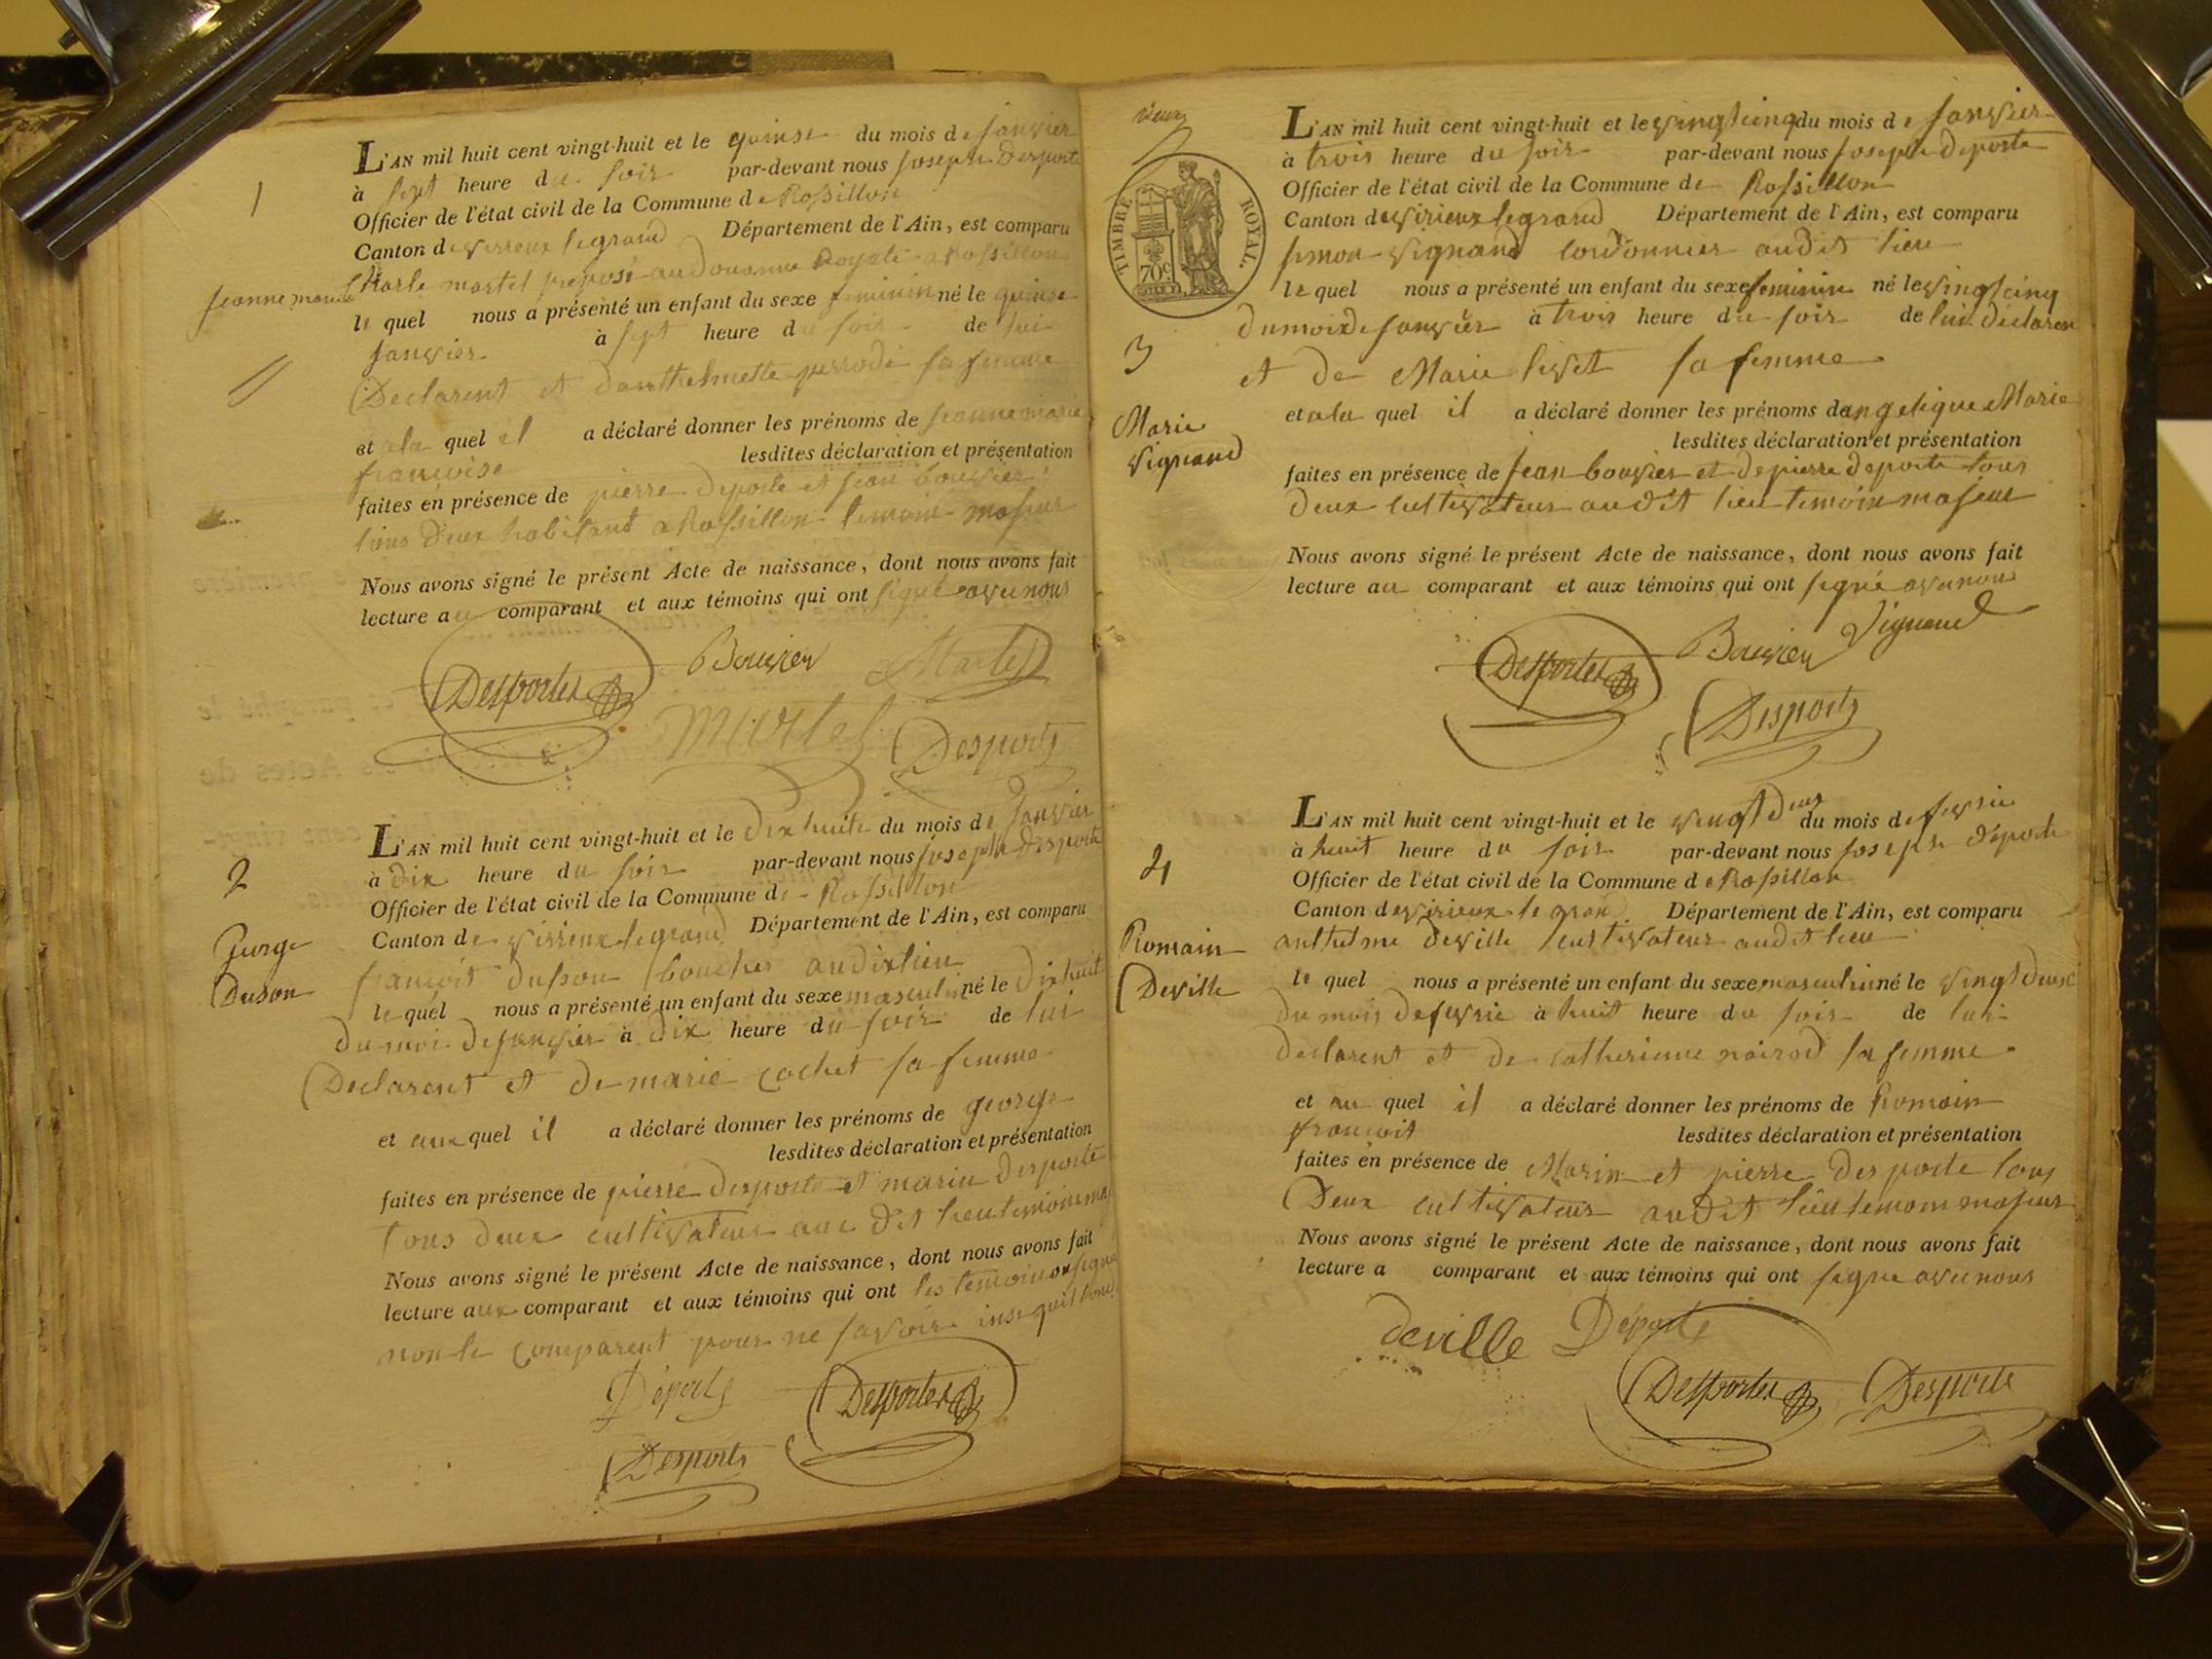 1
Jeanne marie
L'AN mil huit cent vingt-huit et le quinse du mois de Janvier
à sept heure du soir par-devant nous Joseph Desporte
Officier de l'état civil de la Commune de Rossillon
Canton de virieux legrand Département de l'Ain, est comparu
Charle martel préposé au douanne Royale a Rossillon
le quel nous a présenté un enfant du sexe feminin né le quinse
Janvier à sept heure du soir de lui
Declarent et danthelmette perrodi sa femme
et ala quel il a déclaré donner les prénoms de Jeanne marie
francoise lesdites déclaration et présentation
faites en présence de pierre deporte et jean bouvier
tous deux habitant a Rossillon temoin majeur
Nous avons signé le présent Acte de naissance, dont nous avons fait
lecture au comparant et aux témoins qui ont signé avec nous
Desportes Bouvier Martel
Martel Desporte
2
George
Duson
L'AN mil huit cent vingt-huit et le dix huite du mois de Janvier
à dix heure du soir par-devant nous Joseph Desporte
Officier de l'état civil de la Commune de Rossillon
Canton de virieux legrand Département de l'Ain, est comparu
francoit dusson boucher audixlieu
le quel nous a présenté un enfant du sexe masculin né le dixhuit
du moi de janvier à dix heure du soir de lui
Declarent et de marie cochet sa femme
et aux quel il a déclaré donner les prénoms de george
lesdites déclaration et présentation
faites en présence de pierre desporte et marin desporte
tous deux cultivateur aux dit lieu temoin maj
Nous avons signé le présent Acte de naissance, dont nous avons fait
lecture aux comparant et aux témoins qui ont les temoin on signé
non le comparent pour ne savoir
Déporte Desportes
Desporte
TIMBRE ROYAL.
70c
3
Marie
Vignand
L'AN mil huit cent vingt-huit et le vingt cinq du mois de Janvier
à trois heure du soir par-devant nous Joseph deporte
Officier de l'état civil de la Commune de Rossillon
Canton de virieux legrand Département de l'Ain, est comparu
simon vignand cordonnier audit lieu
le quel nous a présenté un enfant du sexe feminin né le vingt cinq
du moix de janvier à trois heure du soir de lui declaren
et de Marie livet sa femme
et ala quel il a déclaré donner les prénoms dangelique Marie
lesdites déclaration et présentation
faites en présence de jean bouvier et de pierre deporte tous
deux cultivateur audit lieu temoin majeur
Nous avons signé le présent Acte de naissance, dont nous avons fait
lecture au comparant et aux témoins qui ont signé avec nous
Desportes Bouvier Vignand
Desporte
4
Romain
Deville
L'AN mil huit cent vingt-huit et le vingt deux du mois de fevrie
à huit heure du soir par-devant nous joseph déporte
Officier de l'état civil de la Commune de Rossillon
Canton de virieux le grand Département de l'Ain, est comparu
anthelme deville cultivateur audit lieu
le quel nous a présenté un enfant du sexe masculin né le vingt deux
du mois de fevrie à huit heure du soir de lui
declarent et de catherinne noirod sa femme
et au quel il a déclaré donner les prénoms de Romain
francoit lesdites déclaration et présentation
faites en présence de Marin et pierre desporte tous
Deux cultivateur audit lieu temoin majeur
Nous avons signé le présent Acte de naissance, dont nous avons fait
lecture a comparant et aux témoins qui ont signé avec nous
deville Déporte
Desportes Desporte